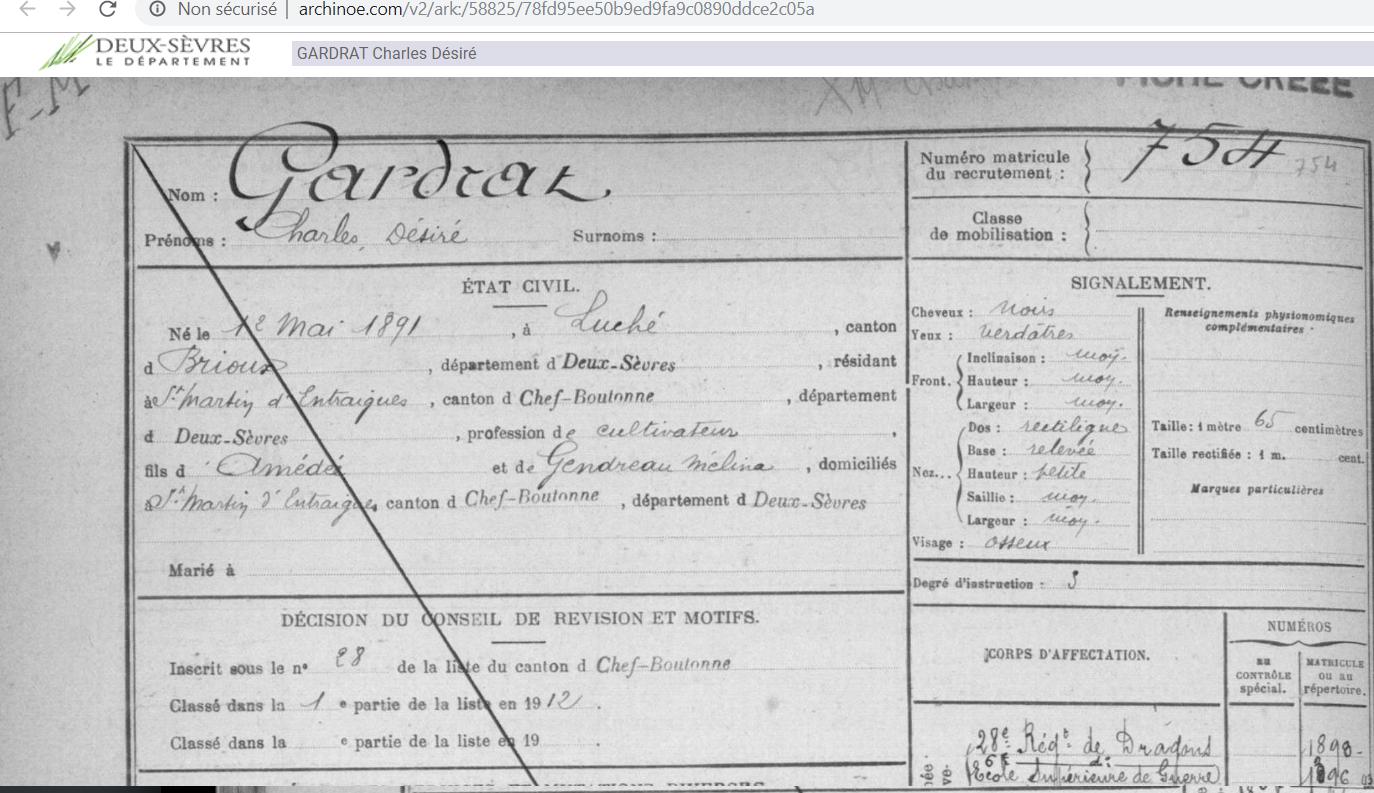 Non sécurisé | archinoe.com/v2/ark:/58825/78fd95ee50b9ed9fa9c0890ddce2c05a
DEUX-SÈVRES
LE DÉPARTEMENT
GARDRAT Charles Désiré
F-M
FICHE CRÉÉE
Nom : Gardrat
Prénoms : Charles, Désiré Surnoms :
Numéro matricule du recrutement : 754 754
Classe de mobilisation :
ÉTAT CIVIL.
Né le 12 Mai 1891, à Luché, canton
d Brioux, département d Deux-Sèvres, résidant
à St Martin d'Entraigues, canton d Chef-Boutonne, département
d Deux-Sèvres, profession de cultivateur,
fils d Amédée et de Gendreau Mélina, domiciliés
à St Martin d'Entraigues, canton d Chef-Boutonne, département d Deux-Sèvres
Marié à
SIGNALEMENT.
Cheveux : noirs
Yeux : verdâtres
Front. Inclinaison : moy.
Hauteur : moy.
Largeur : moy.
Nez... Dos : rectiligne
Base : relevée
Hauteur : petite
Saillie : moy.
Largeur : moy.
Visage : osseux
Renseignements physionomiques complémentaires :
Taille : 1 mètre 65 centimètres
Taille rectifiée : 1 m. cent.
Marques particulières
Degré d'instruction : 3
DÉCISION DU CONSEIL DE REVISION ET MOTIFS.
Inscrit sous le n° 28 de la liste du canton d Chef-Boutonne
Classé dans la 1 e partie de la liste en 1912.
Classé dans la e partie de la liste en 19 .
CORPS D'AFFECTATION.
NUMÉROS
au CONTRÔLE spécial.
MATRICULE ou au répertoire.
28e Régt de Dragons 1898
École Supérieure de Guerre